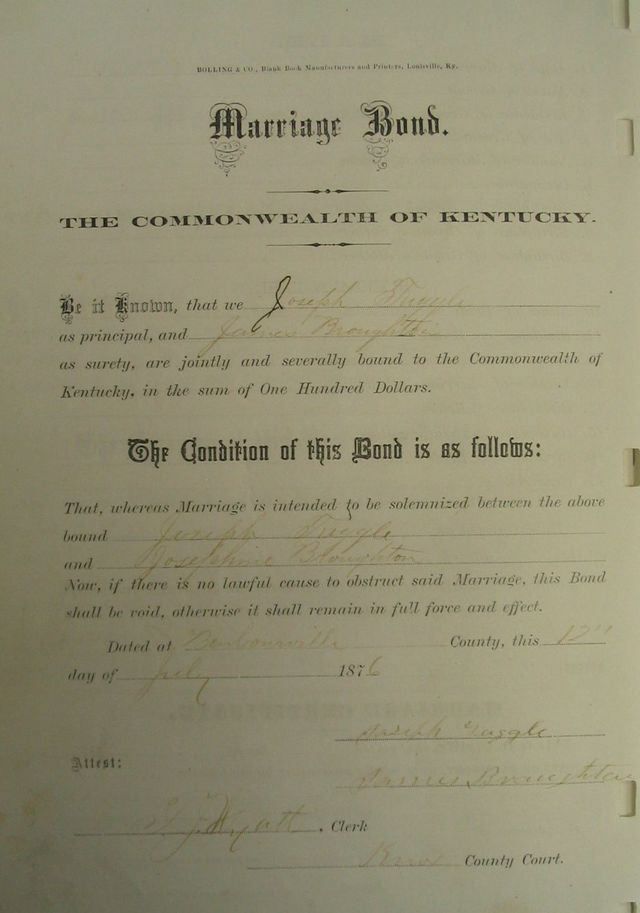 BOLLING & CO., Blank Book Manufacturers and Printers, Louisville, Ky.
Marriage Bond.
THE COMMONWEALTH OF KENTUCKY.
Be it Known, that we Joseph Tuggle
as principal, and James Broughton
as surety, are jointly and severally bound to the Commonwealth of
Kentucky, in the sum of One Hundred Dollars.
The Condition of this Bond is as follows:
That, whereas Marriage is intended to be solemnized between the above
bound Joseph Tuggle
and Josephine Broughton
Now, if there is no lawful cause to obstruct said Marriage, this Bond
shall be void, otherwise it shall remain in full force and effect.
Dated at Barbourville County, this 12"
day of July 1876
Joseph Tuggle
Attest:
James Broughton
Wyatt, Clerk
Knox County Court.